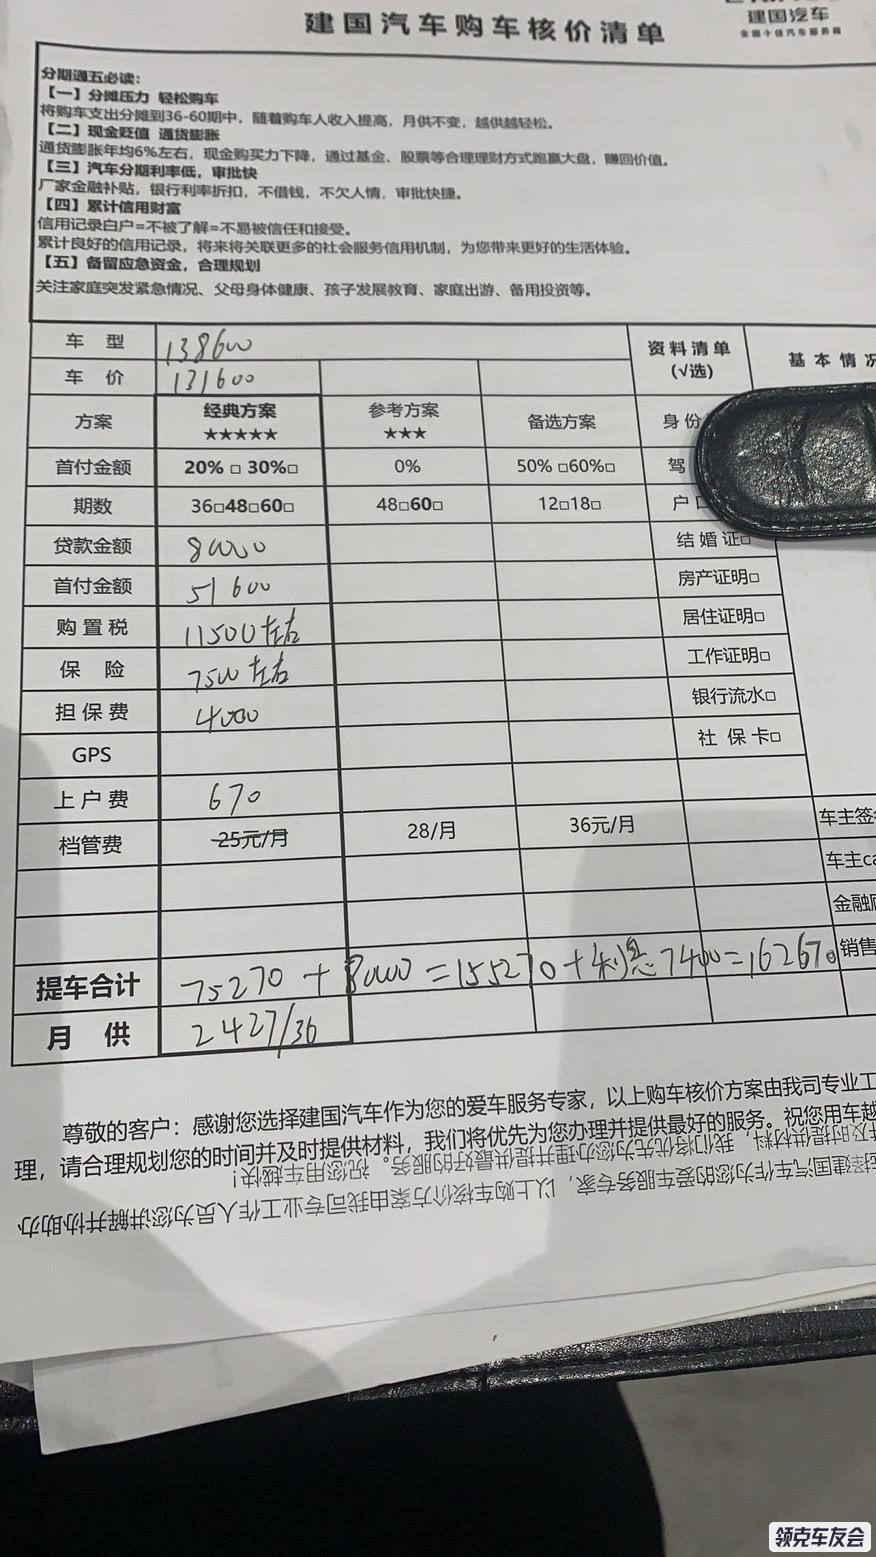 建国汽车购车核价清单
建国汽车
全国十佳汽车服务商
分期通五必读：
【一】分摊压力 轻松购车
将购车支出分摊到36-60期中，随着购车人收入提高，月供不变，越供越轻松。
【二】现金贬值 通货膨胀
通货膨胀年均6%左右，现金购买力下降，通过基金、股票等合理理财方式跑赢大盘，赚回价值。
【三】汽车分期利率低，审批快
厂家金融补贴，银行利率折扣，不借钱，不欠人情，审批快捷。
【四】累计信用财富
信用记录白户=不被了解=不易被信任和接受。
累计良好的信用记录，将来将关联更多的社会服务信用机制，为您带来更好的生活体验。
【五】备留应急资金，合理规划
关注家庭突发紧急情况、父母身体健康、孩子发展教育、家庭出游、备用投资等。
车 型 138600 资料清单 (√选) 基本情况
车 价 131600
方案 经典方案 ★★★★★ 参考方案 ★★★ 备选方案 身份
首付金额 20% □ 30%□ 0% 50% □60%□ 驾
期数 36□48□60□ 48□60□ 12□18□ 户口
贷款金额 80000 结婚证□
首付金额 51600 房产证明□
购置税 11500左右 居住证明□
保 险 7500左右 工作证明□
担保费 4000 银行流水□
GPS 社保卡□
上户费 670
档管费 25元/月 28/月 36元/月 车主签
车主ca
金融顾
提车合计 75270 + 80000 = 155270 + 利息7400 = 162670 销售
月 供 2427/36
尊敬的客户：感谢您选择建国汽车作为您的爱车服务专家，以上购车核价方案由我司专业工
理，请合理规划您的时间并及时提供材料，我们将优先为您办理并提供最好的服务。祝您用车越
及时提供材料，我们将优先为您办理并提供最好的服务。祝您用车越快！
择建国汽车作为您的爱车服务专家，以上购车核价方案由我司专业工作人员为您讲解并协助办
领克车友会